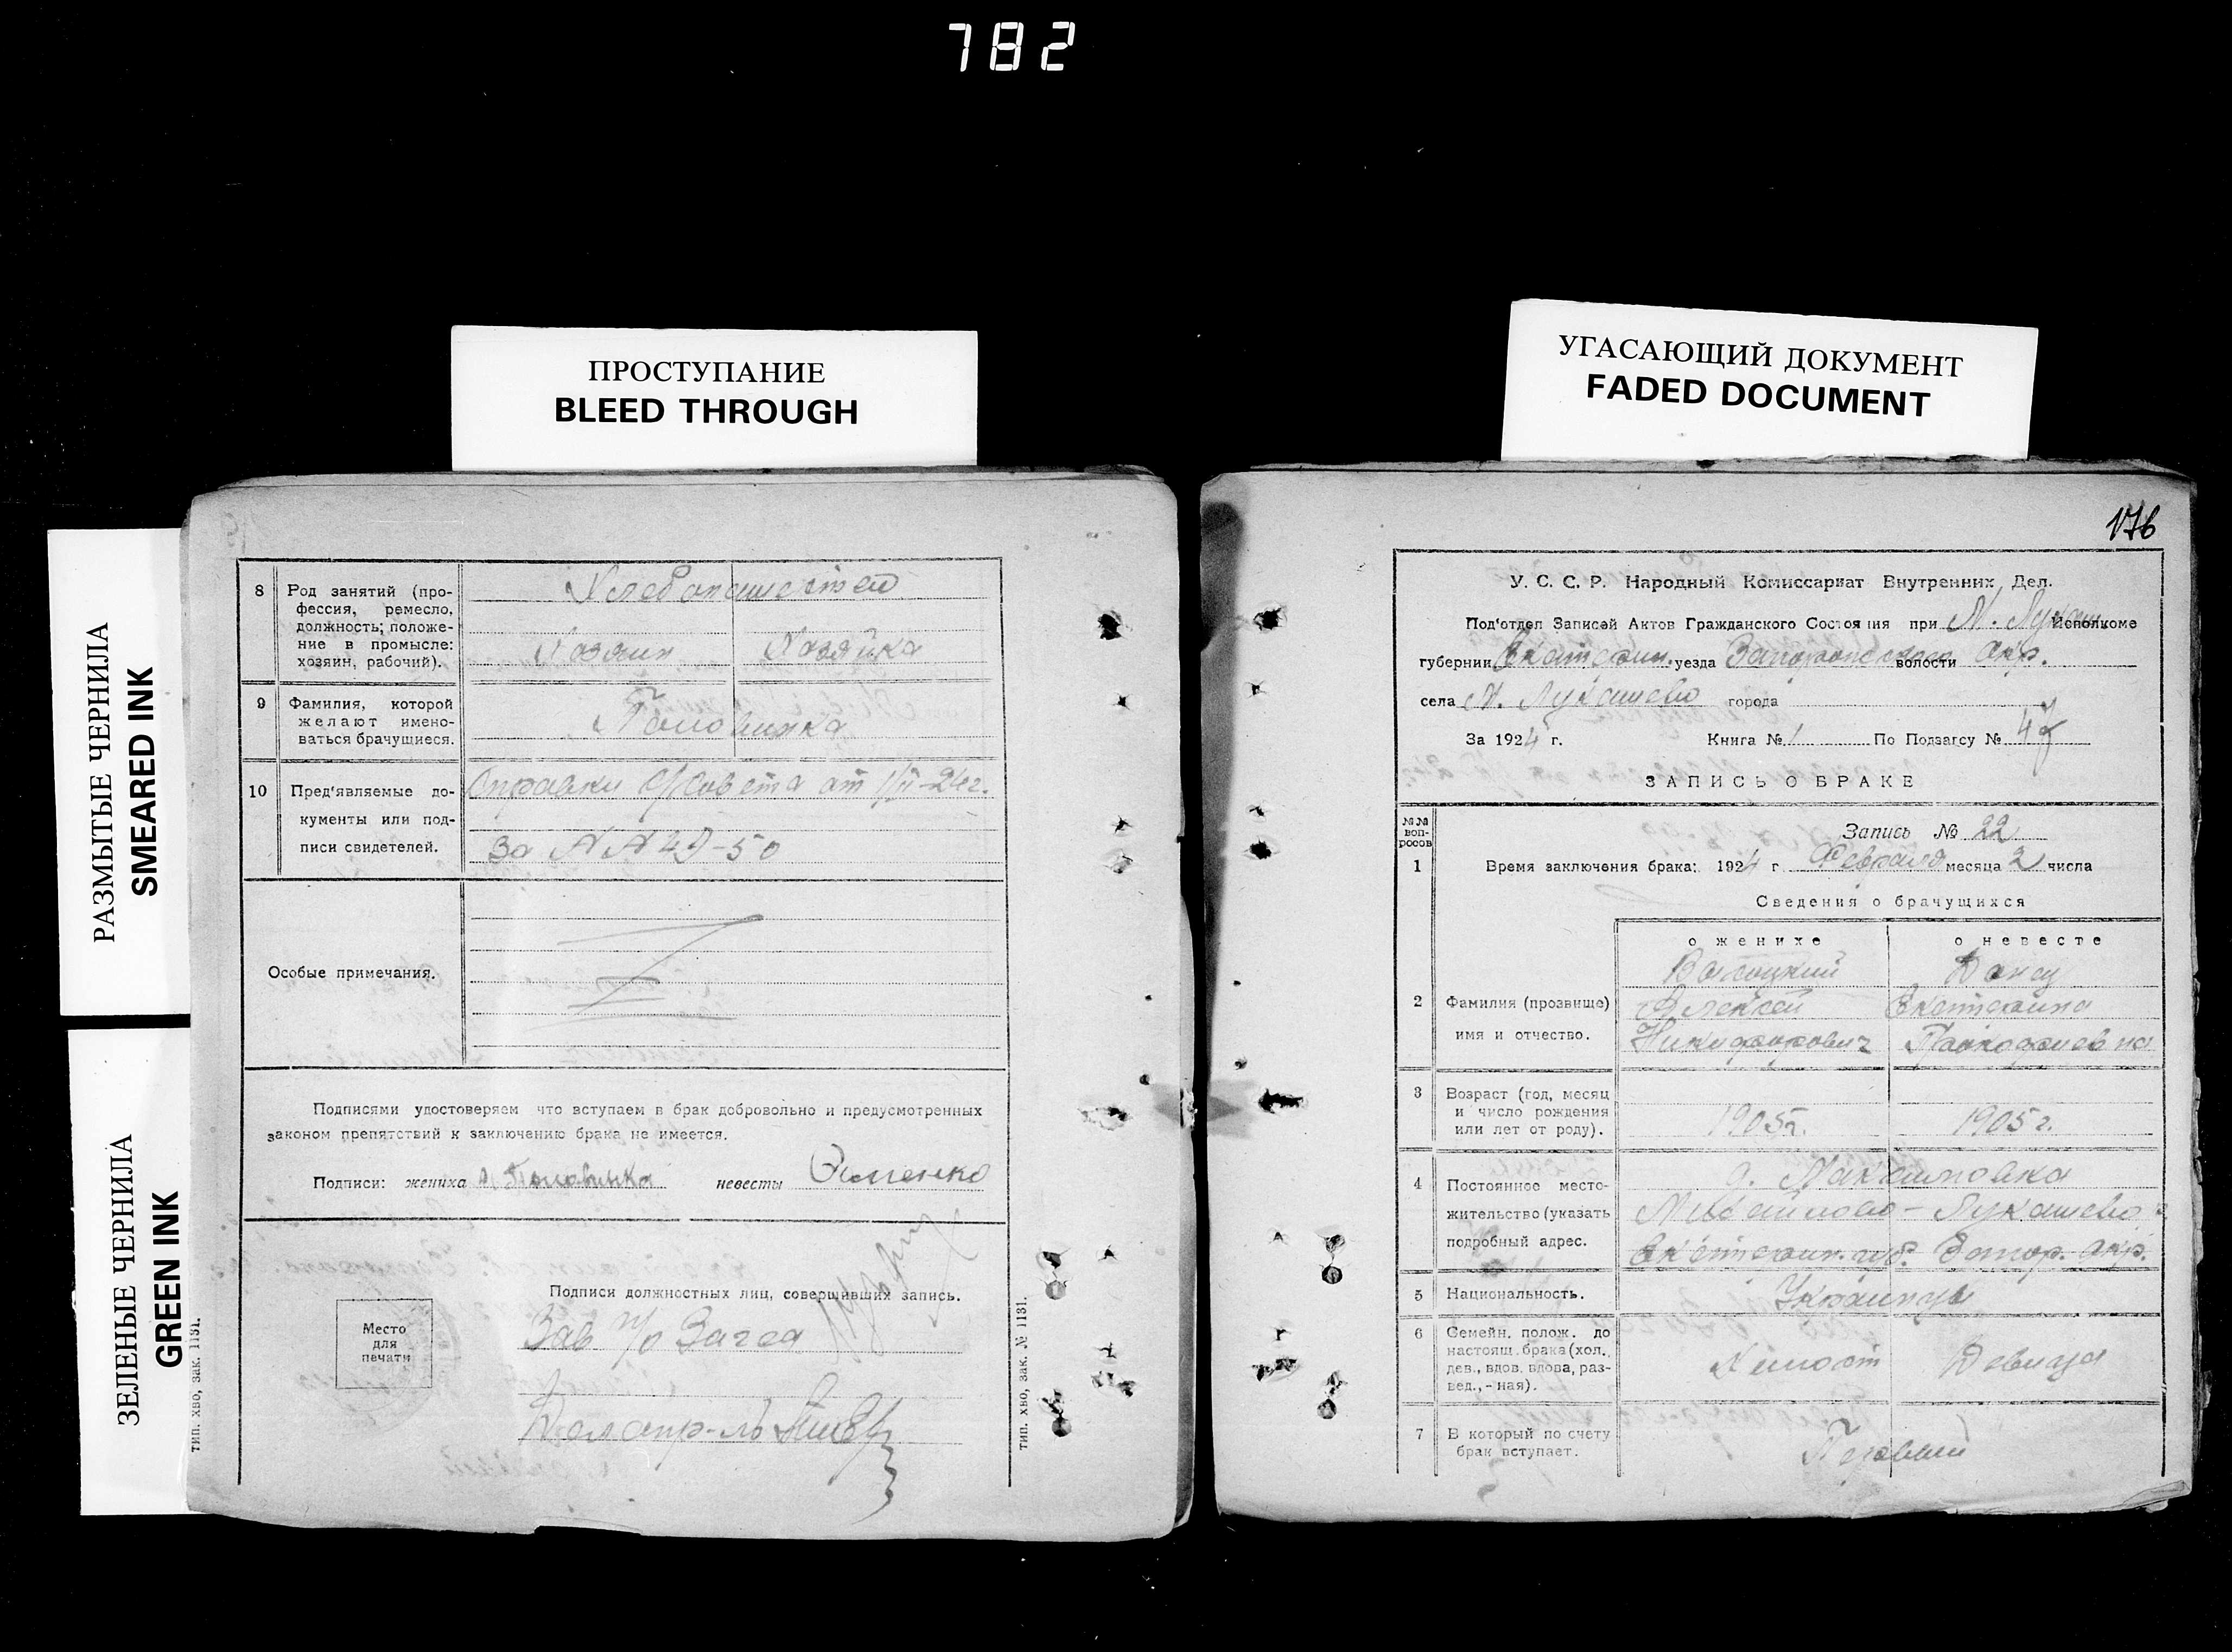 782
ПРОСТУПАНИЕ
BLEED THROUGH
УГАСАЮЩИЙ ДОКУМЕНТ
FADED DOCUMENT
РАЗМЫТЫЕ ЧЕРНИЛА
SMEARED INK
ЗЕЛЕНЫЕ ЧЕРНИЛА
GREEN INK
8 Род занятий (про-
фессия, ремесло,
должность; положе-
ние в промысле:
хозяин, рабочий).
Хлебопашеством
Хозяин Хозяйка
9 Фамилия, которой
желают имено-
ваться брачущиеся.
Половинка
10 Пред'являемые до-
кументы или под-
писи свидетелей.
Справки С/Совета от 1/II-24г.
За №№ 49-50
Особые примечания.
Подписями удостоверяем что вступаем в брак добровольно и предусмотренных
законом препятствий к заключению брака не имеется.
Подписи: жениха Половинка невесты
Подписи должностных лиц, совершивших запись.
Зав п/о Загса
Место
для
печати
Делопр-ль
тип. хво, зак. 1131.
тип. хво, зак. № 1131.
176
У. С. С. Р. Народный Комиссариат Внутренних Дел.
Под'отдел Записей Актов Гражданского Состояния при М. Лукаш. Исполкоме
губернии Екатерин. уезда Запорожского волости Окр.
села М. Лукашево города
За 1924 г. Книга № 1 По Подзагсу № 47
ЗАПИСЬ О БРАКЕ
№№
воп-
росов
Запись № 22
1 Время заключения брака: 1924 г. Февраля месяца 2 числа
Сведения о брачущихся
о женихе о невесте
2 Фамилия (прозвище)
имя и отчество.
Алексей Екатерина
Никифорович Прокофиевна
3 Возраст (год, месяц
и число рождения
или лет от роду).
1905г. 1905г.
4 Постоянное место-
жительство (указать
подробный адрес.
Михайлово-Лукашево
Екатерин. губ. Запор. окр.
5 Национальность.
Украинцы
6 Семейн. полож. до
настоящ. брака (хол.,
дев., вдов, вдова, раз-
вед.,-ная).
Холост Девица
7 В который по счету
брак вступает.
Первый